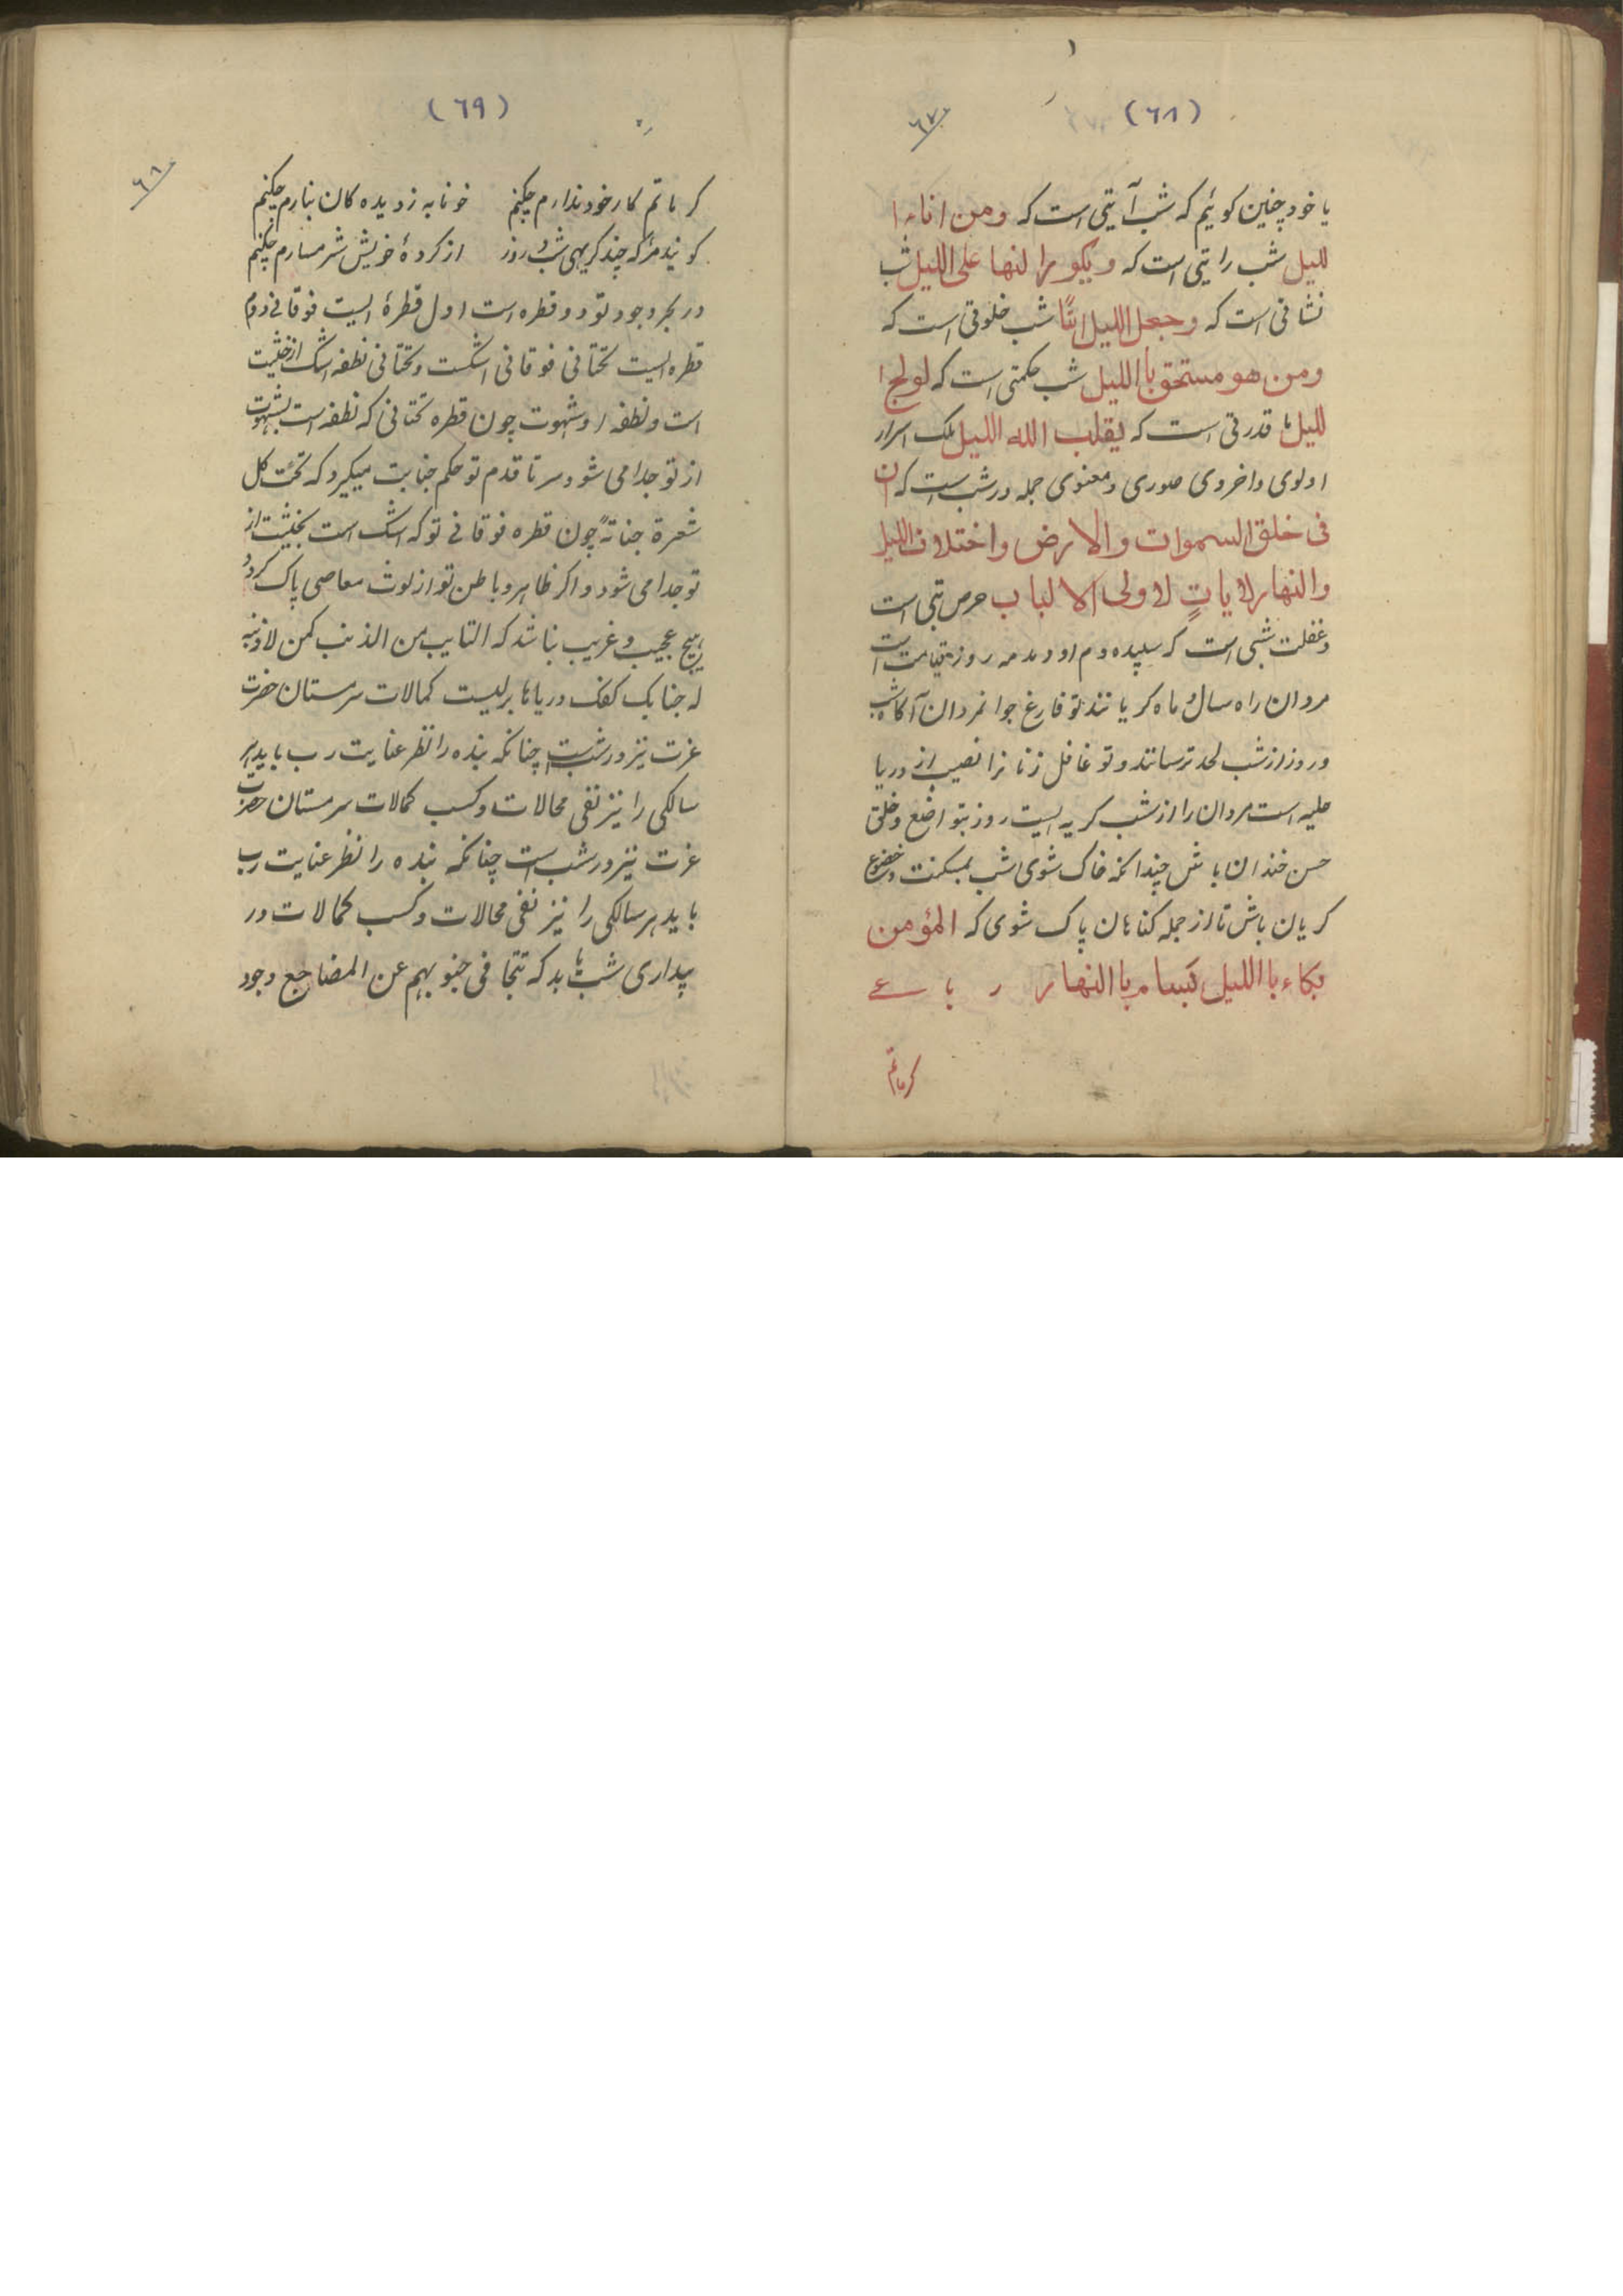 (٦٨)
٦٧
یا خود چنین کوئیم که شب آیتی است که ومن اناء ا
للیل شب رایتی است که ویکورالنها علی اللیل شب
نشانی است که وجعل اللیل شب خلوتی است که
ومن هو مستحق باللیل شب حکمتی است که لولج ا
للیل قدرتی است که یقلب الله اللیل ملک اسرار
اولوی واخروی صوری ومعنوی جمله در شب است که ان
فی خلق السموات والارض واختلاف اللیل
والنهار لایاتٍ لاولی الالباب حرص تبی است
وغفلت شبی است که سپیده دم او روز قیامت است
مردان راه سال و ماه کریانند تو فارغ جوانمردان آکاه شب
وروز از شب لحد ترسانند و تو غافل زنانرا نصیب از دریا
حلیه است مردان را از شب کریه ایست روز بتواضع وخلق
حسن خندان باش چندانکه خاک شوی شب بمسکنت وخضوع
کریان باش تا از جمله کناهان پاک شوی که المؤمن
بکاء باللیل بسام باالنهار ر با عے
کر ماتم
(٦٩)
٦٨
کر ماتم کار خود ندارم چکنم خونابه ز دیده کان نبارم چکنم
کویند مرا که چند کریی شب و روز از کردهٔ خویش شرمسارم چکنم
در بحر وجود تو دو قطره است اول قطرهٔ ایست فوقانے دوم
قطره ایست تحتانی فوقانی اشکست وتحتانی نطفه اشک از خشیت
است ونطفه از شهوت چون قطره تحتانی که نطفه است بشهوت
از تو جدا می شود سر تا قدم تو حکم جنابت میکیرد که تحت کل
شعرة جنابةً چون قطره فوقانے تو که اشک است بخشیت از
تو جدا می شود واکر ظاهر وباطن تو از لوث معاصی پاک کردد
هیچ عجیب و غریب نباشد که التایب من الذنب کمن لا ذنب
له جنابک کفک دریاها بر لیست کمالات سرمستان حضرت
عزت نیز در شب است چنانکه بنده را نظر عنایت رب باید هر
سالکی را نیز نفی محالات وکسب کمالات سرمستان حضرت
عزت نیز در شب است چنانکه بنده را نظر عنایت رب
باید هر سالکی را نیز نفی محالات وکسب کمالات در
بیداری شب باید که تتجافی جنوبهم عن المضاجع وجود